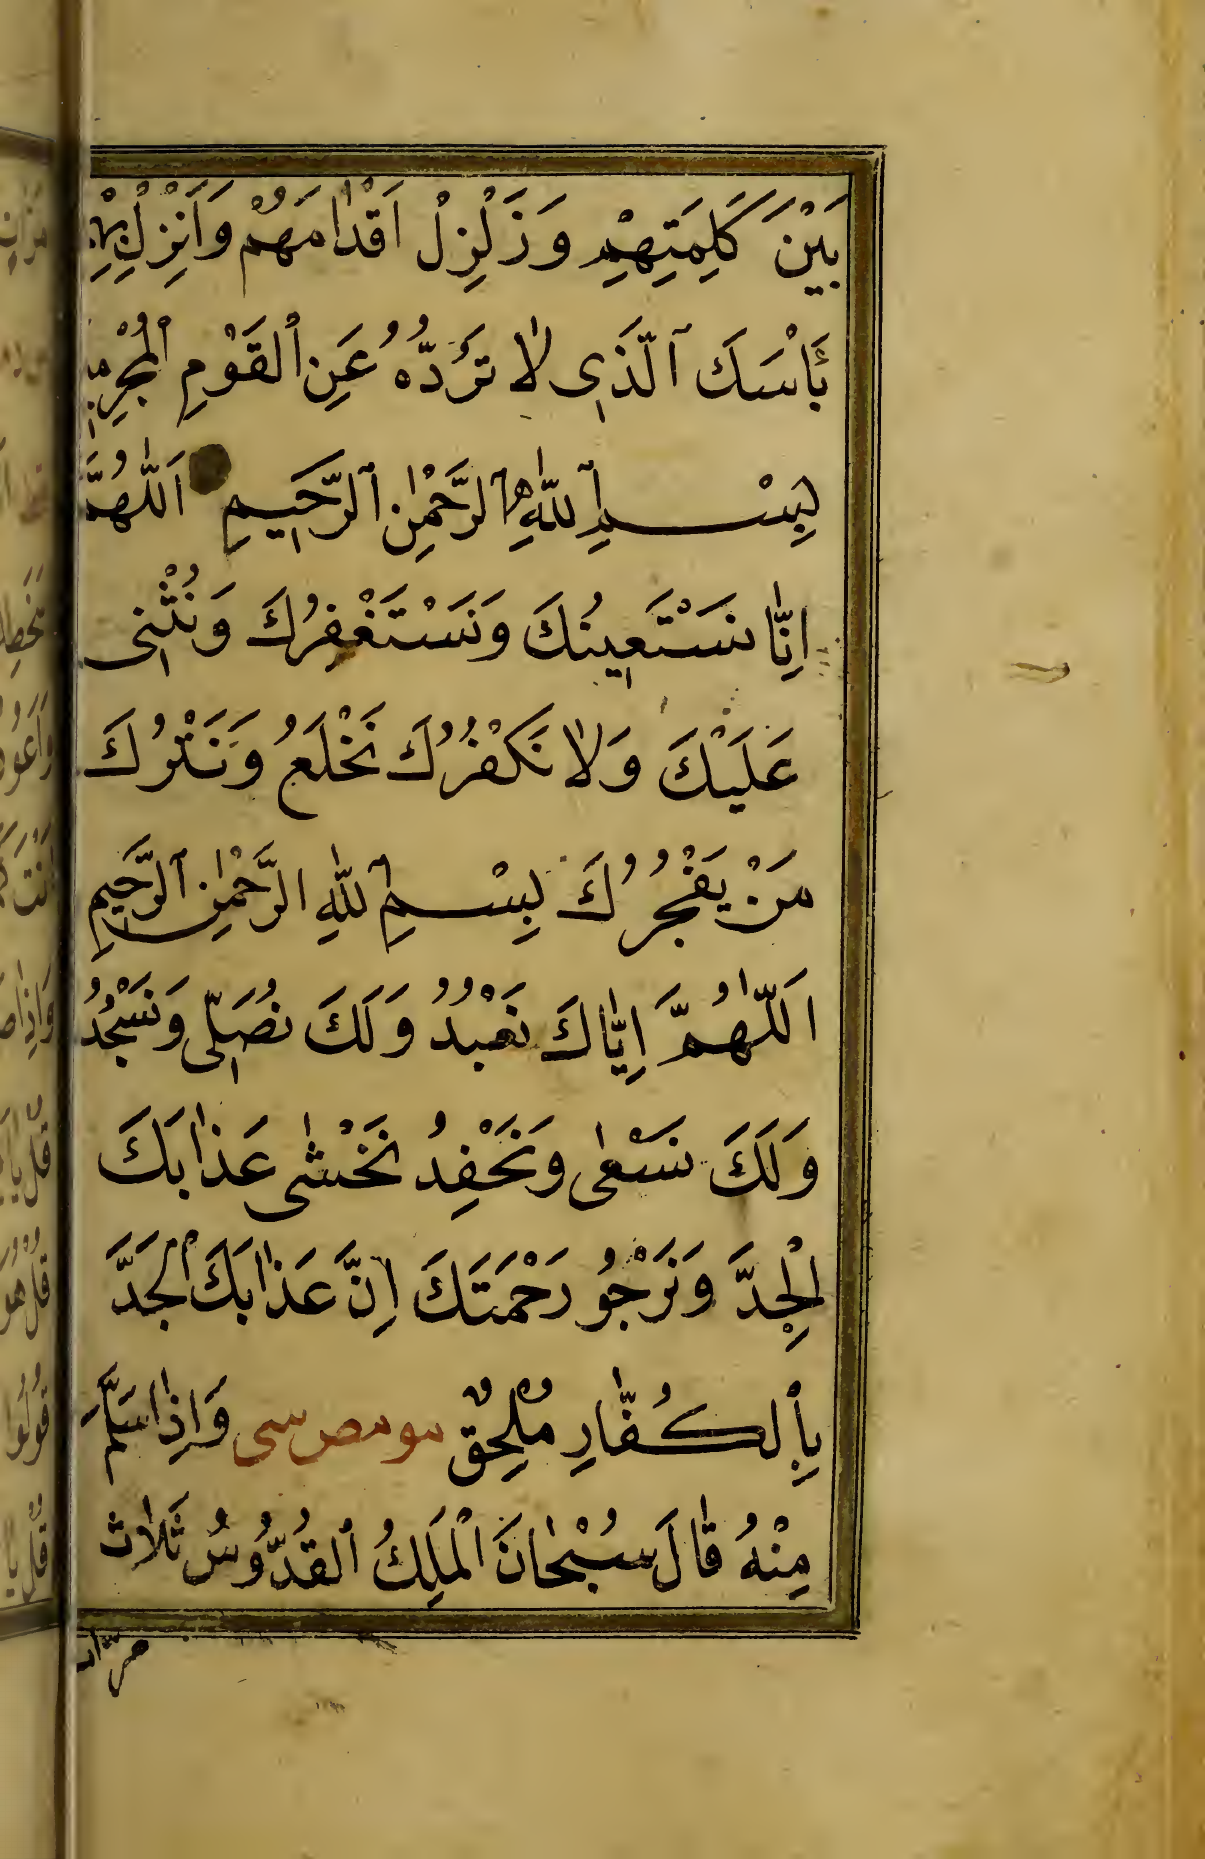 بَيْنَ كَلِمَتِهِمْ وَزَلْزِلْ اَقْدٰامَهُمْ وَاَنْزِلْ بِهِمْ
بَأْسَكَ ٱلَّذِى لٰا تَرُدُّهُ عَنِ ٱلقَوْمِ ٱلمُجْرِمِينَ
بِسْمِ ٱللّٰهِ ٱلرَّحْمٰنِ ٱلرَّحِيمِ اَللّٰهُمَّ
اِنّٰا نَسْتَعِينُكَ وَنَسْتَغْفِرُكَ وَنُثْنِى
عَلَيْكَ وَلٰا نَكْفُرُكَ نَخْلَعُ وَنَتْرُكَ
مَنْ يَفْجُرُكَ بِسْمِ ٱللّٰهِ الرَّحْمٰنِ ٱلرَّحِيمِ
اَللّٰهُمَّ اِيّٰاكَ نَعْبُدُ وَلَكَ نُصَلِّى وَنَسْجُدُ
وَلَكَ نَسْعٰى وَنَحْفِدُ نَخْشٰى عَذٰابَكَ
الْجِدَّ وَنَرْجُو رَحْمَتَكَ اِنَّ عَذٰابَكَ ٱلْجَدَّ
بِٱلكُفّٰارِ مُلْحِقٌ مو مص سى وَاِذٰا سَلَّمَ
مِنْهُ قٰالَ سُبْحٰانَ ٱلْمَلِكُ ٱلقُدُّوسُ ثَلٰاث
مرّات